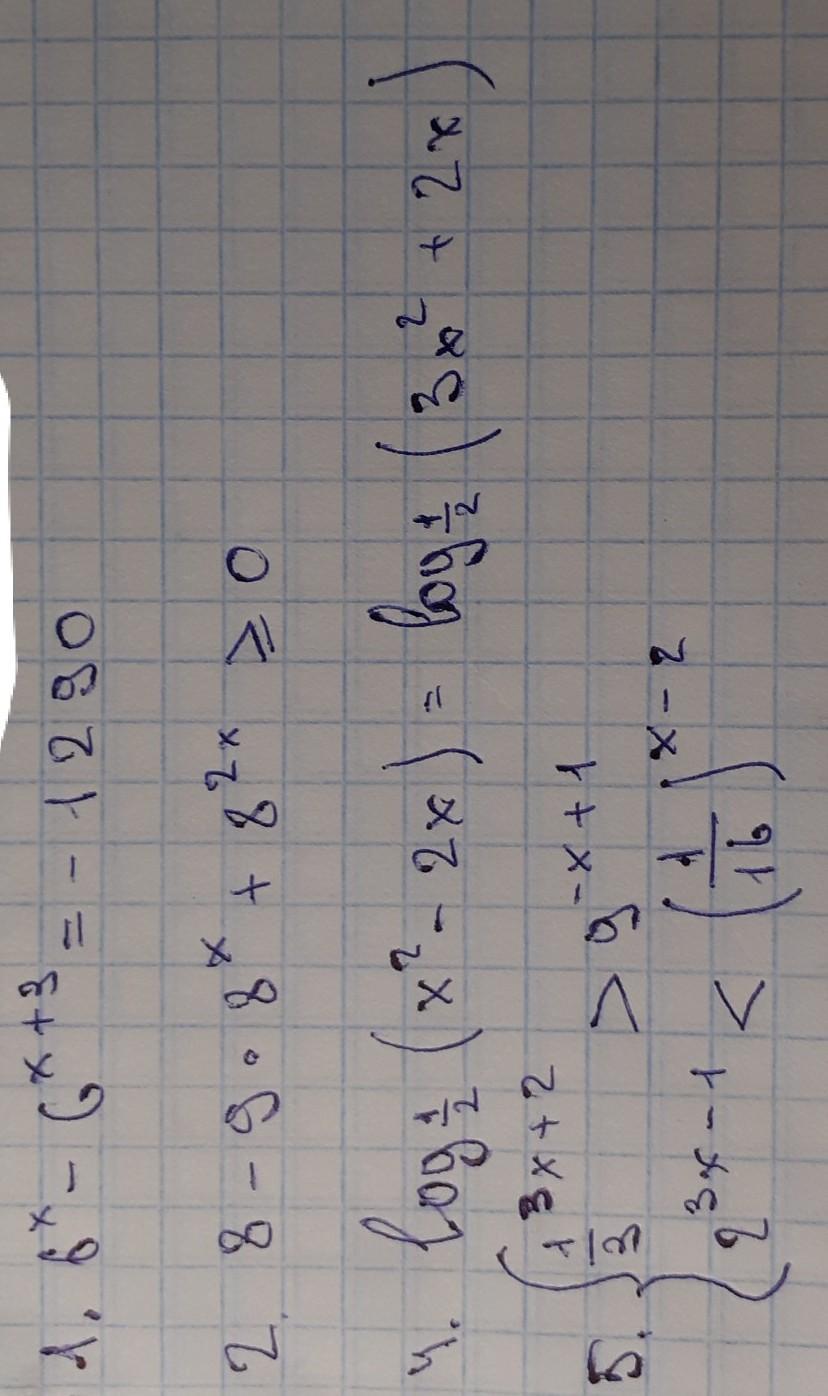 1. 6^x - 6^{x+3} = -1290
2. 8 - 9 · 8^x + 8^{2x} ≥ 0
4. log_{1/2} (x^2 - 2x) = log_{1/2} (3x^2 + 2x)
5. { 1/3^{3x+2} > 9^{-x+1}
2^{3x-1} < (1/16)^{x-2}